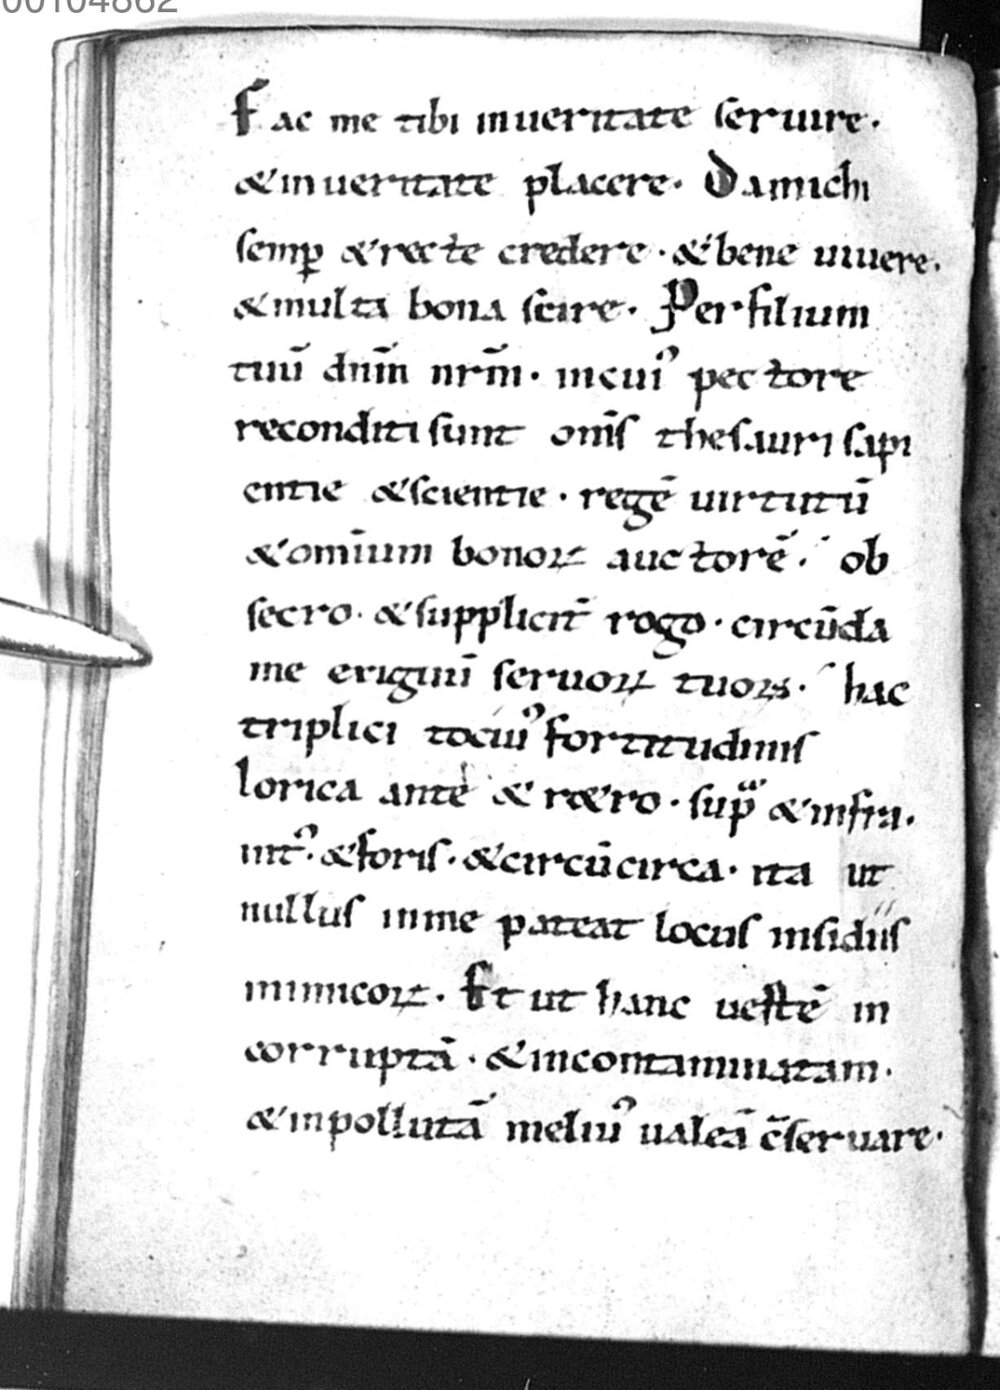 00104862
Fac me tibi inueritate seruire.
&inueritate placere. Damichi
semꝑ &recte credere. &bene uiuere.
&multa bona scire. Per filium
tuū dnm̄ nrm̄. incuiꝰ pectore
reconditi sunt om̄s thesauri sapi
entie &scientie. regē uirtutū
&omīum bonoꝝ auctorē. ob
secro. &supplicit̄ rogo. circūda
me eriguū seruoꝝ tuoꝝ. hac
triplici tociuꝰ fortitudinis
lorica ante & r&ro. sup̄ &infra.
int̄ꝰ. &foris. &circūcirca. ita ut
nullus inme pateat locus insidiis
inimicoꝝ. Et ut hanc uestē in
corruptā. &incontaminatam.
&inpollutā meliuꝰ ualeā c̄seruare.